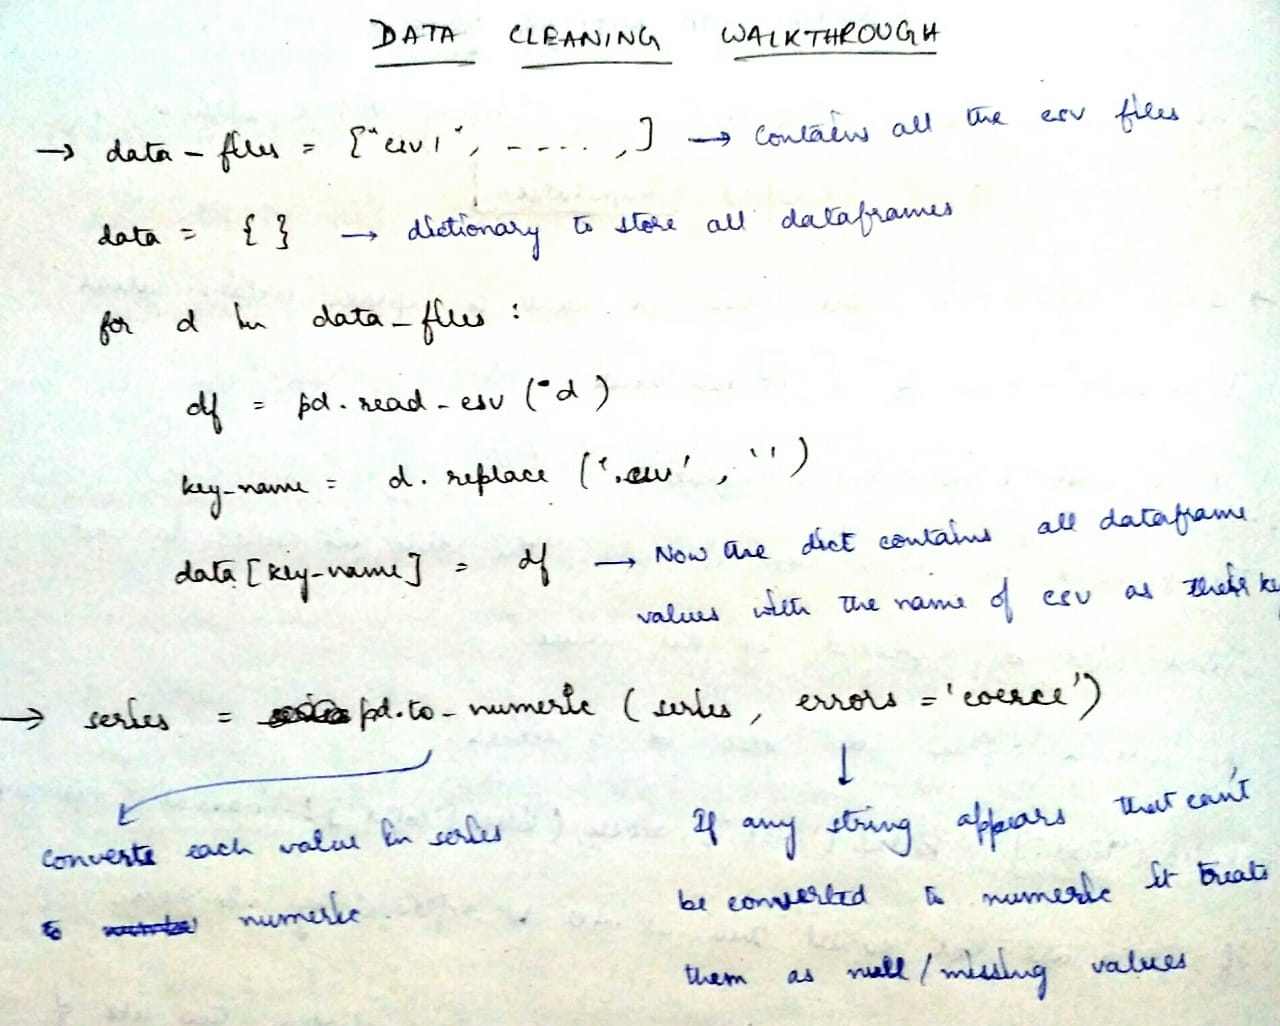 DATA CLEANING WALKTHROUGH
→ data_files = ["csv1", - - - . . , ] → Contains all the csv files
data = { } → dictionary to store all dataframes
for d in data_files :
df = pd.read_csv ("d )
key_name = d. replace ('.csv' , '')
data [key_name] = df → Now the dict contains all dataframe
values with the name of csv as their ke
→ series = pd.to_numeric ( series, errors = 'coerce')
converts each value in series
to numeric
If any string appears that can't
be converted to numeric it treats
them as null / missing values